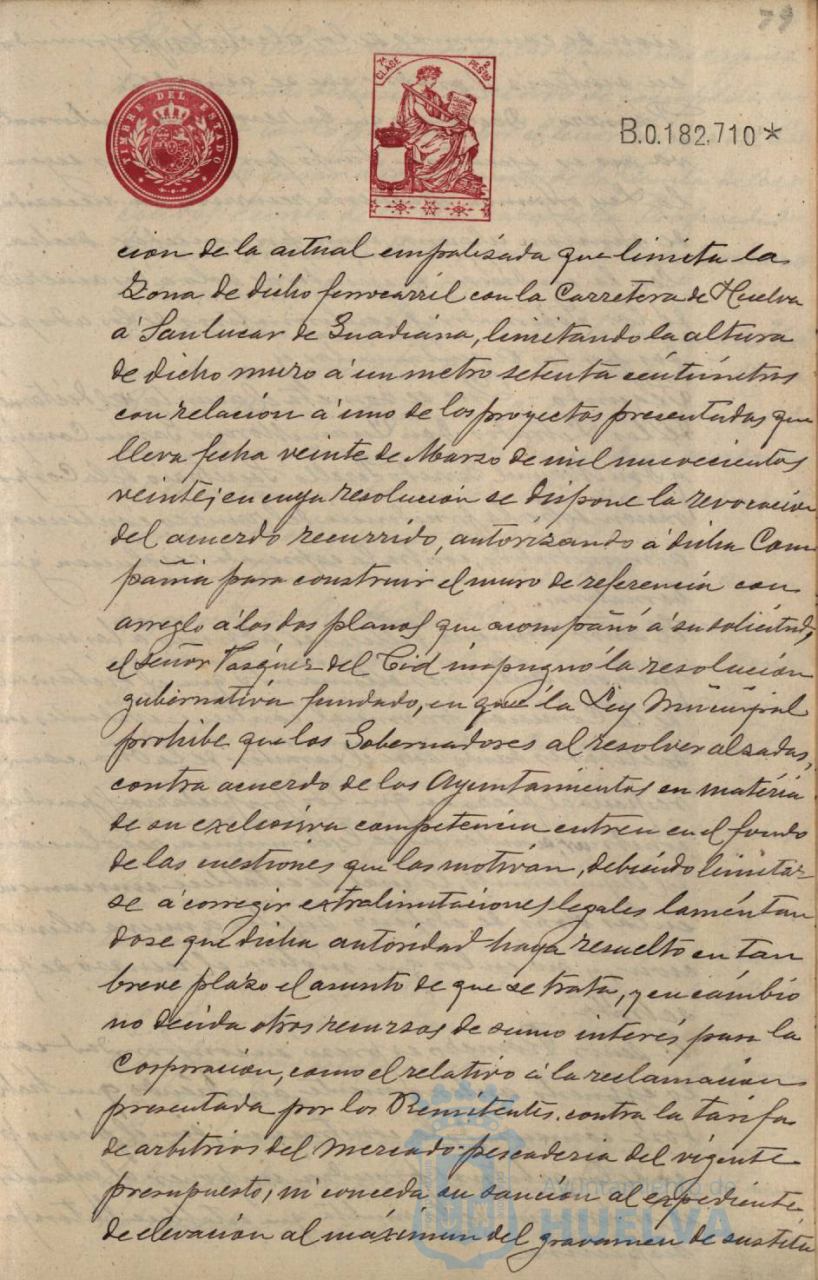 79
TIMBRE DEL ESTADO
7ª CLASE 2 PESTAS
B.0.182.710*
cion de la actual empalisada que limita la
Zona de dicho ferrocarril con la Carretera de Huelva
á Sanlucar de Guadiana, limitando la altura
de dicho muro á un metro setenta centímetros
con relacion á uno de los proyectos presentados que
lleva fecha veinte de Marzo de mil nuevecientos
veinte; en cuya resolución se dispone la revocación
del acuerdo recurrido, autorizando á dicha Com
pañia para construir el muro de referencia con
arreglo á los dos planos que acompañó á su solicitud,
el señor Vasquez del Cid impugnó la resolución
gubernativa fundado, en que la Ley Municipal
prohibe que los Gobernadores al resolver alzadas,
contra acuerdo de los Ayuntamientos en matéria
de su exclusiva competencia entren en el fondo
de las cuestiones que las motivan, debiendo limitar-
se á corregir extralimitaciones legales lamentan
dose que dicha autoridad haya resuelto en tan
breve plazo el asunto de que se trata, y en cambio
no decida otros recursos de sumo interés para la
Corporación, como el relativo á la reclamación
presentada por los Remitentes contra la tarifa
de arbitrios del mercado pescaderia del vigente
presupuesto, ni conceda su sanción al expediente
de elevación al máximun del gravamen de sustitu
Ayuntamiento de
HUELVA